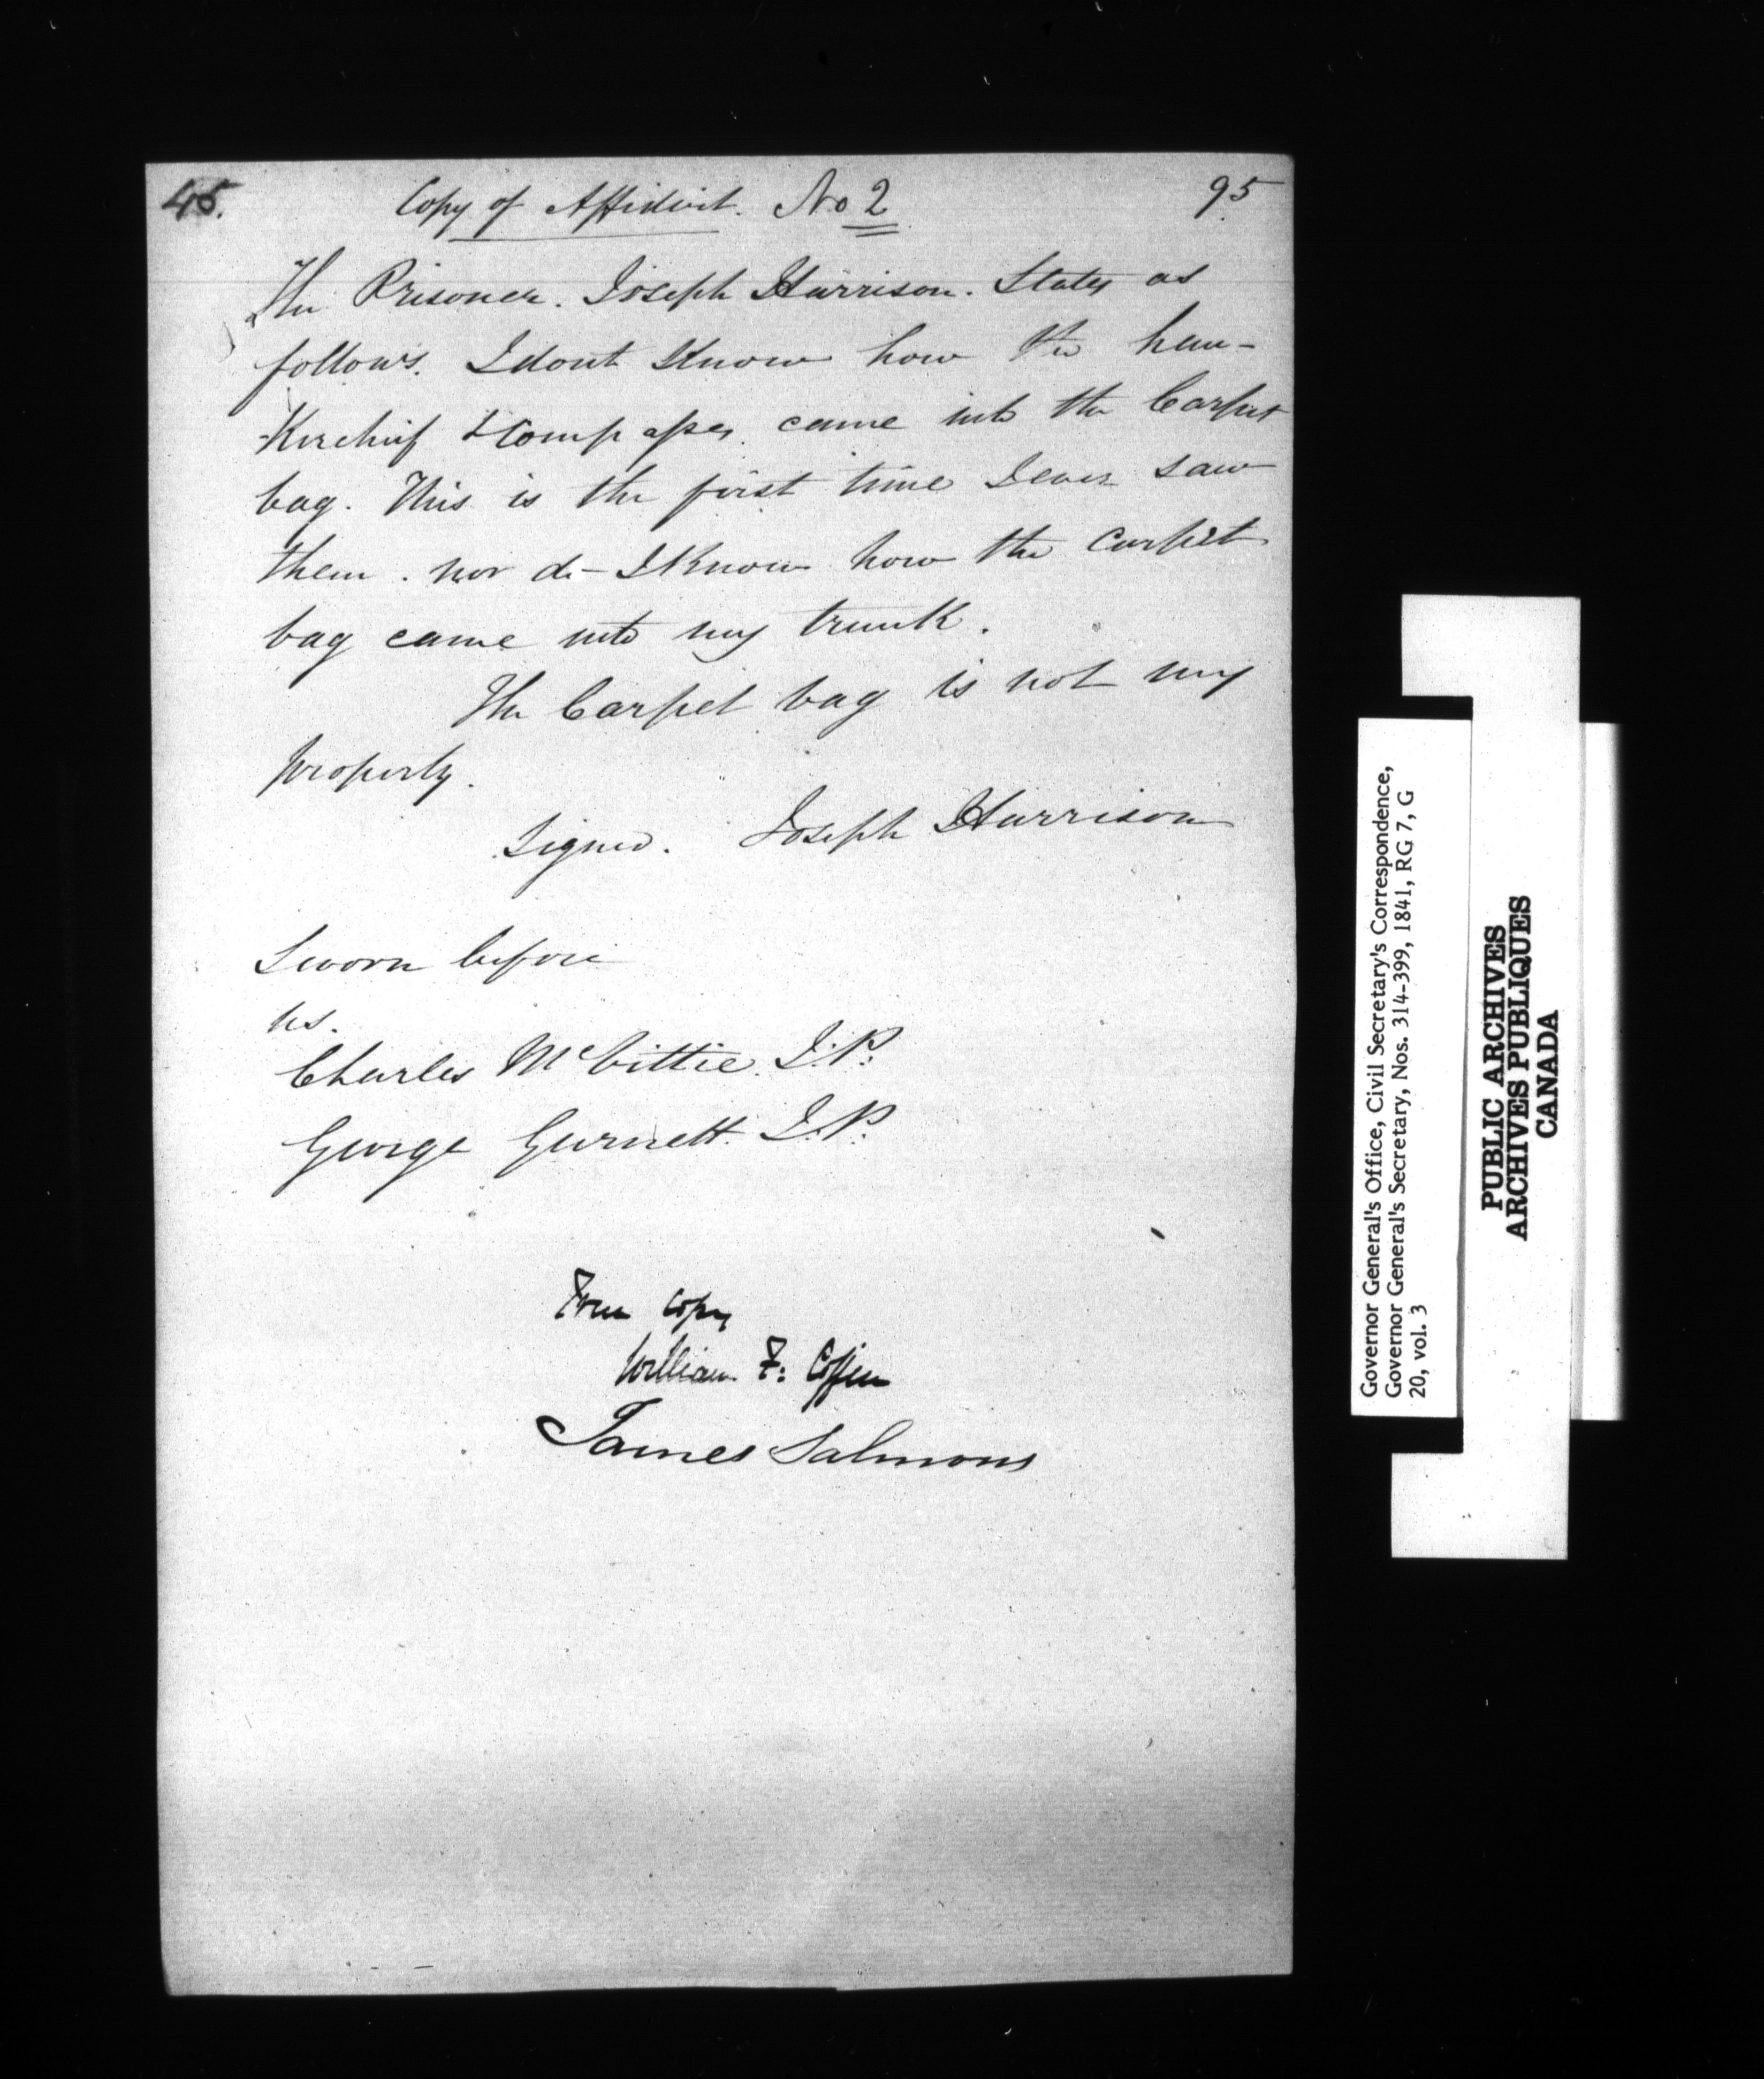 45.
Copy of Affidavit. No 2
95
The Prisoner. Joseph Harrison. States as
follows. I dont Know how the han-
-Kerchief & Compasses came into the Carpet
bag. This is the first time I ever saw
them. nor do I Know how the carpet
bag came into my trunk.
The Carpet bag is not my
property.
Signed. Joseph Harrison
Sworn before
us.
Charles McVittie. J.P.
George Gurnett. J.P.
True Copy
William F: Coffin
James Salmons
Governor General's Office, Civil Secretary's Correspondence,
Governor General's Secretary, Nos. 314-399, 1841, RG 7, G
20, vol. 3
PUBLIC ARCHIVES
ARCHIVES PUBLIQUES
CANADA